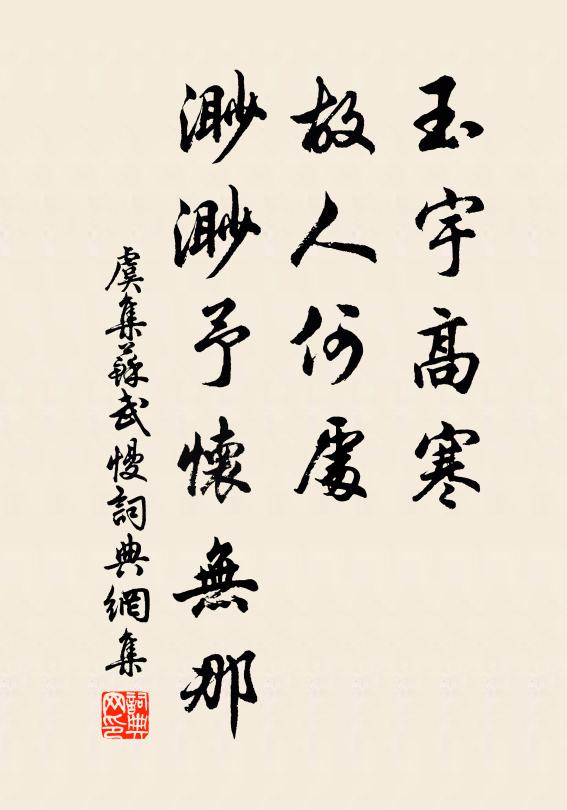 玉宇高寒
故人何處
渺渺予懷無那
虞集蘇武慢詞典網集
詞典網印